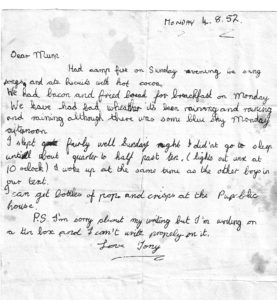 MONDAY 4.8.52.
Dear Mum
Had camp fire on Sunday evening we sang
songs and ate biscuits with hot cocoa.
We had bacon and fried bread for breakfast on Monday
We have had bad whether its been raining and raining
and raining although there was some blue sky Monday
afternoon
I slept fairly well Sunday night I didn't go to sleep
untill about quarter to half past ten. (lights out are at
10 oclock) I woke up at the same time as the other boys in
our tent.
I can get bottles of pop and crisps at the Pup blic
house.
P.S. I'm sorry about my writing but I'm writing on
a tin box and I can't write properly on it.
Love Tony